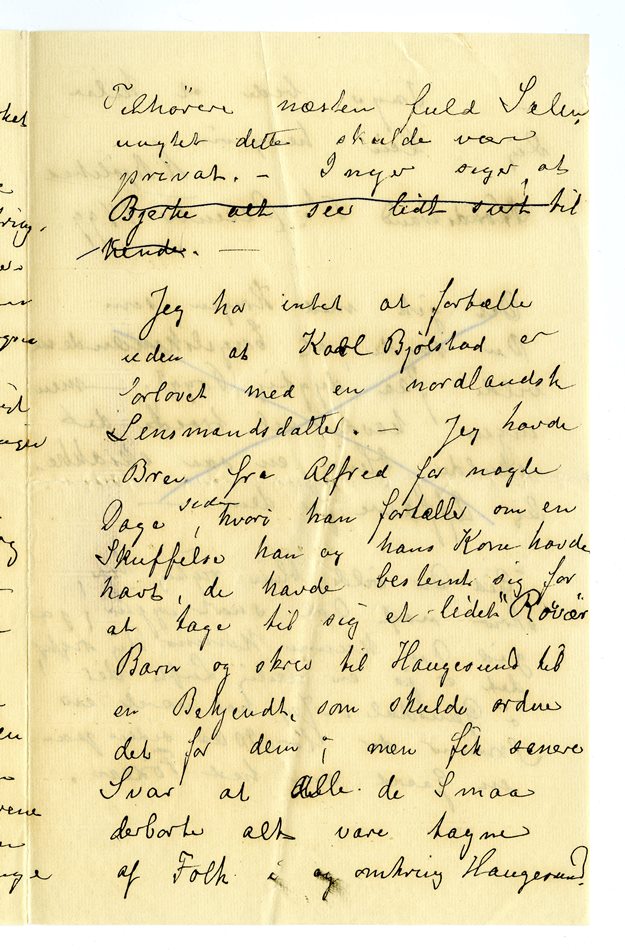 Tilhörere næsten fuld Salen,
uagtet dette skulde være
privat. - Inger siger, at
Bjerke alt seer lidt surt til
hende. -
Jeg har intet at fortælle
uden at Karl Bjölstad er
forlovet med en nordlandsk
Lensmandsdatter. - Jeg havde
Brev fra Alfred for nogle
Dage siden, hvori han fortælle om en
Skuffelse han og hans Kone havde
havt, de havde bestemt sig for
at tage til sig et lidet "Rövær
Barn og skrev til Haugesund til
en Bekjendt, som skulde ordne
det for dem; men fik senere
Svar at alle de Smaa
derborte alt vare tagne
af Folk i og omkring Haugesund.